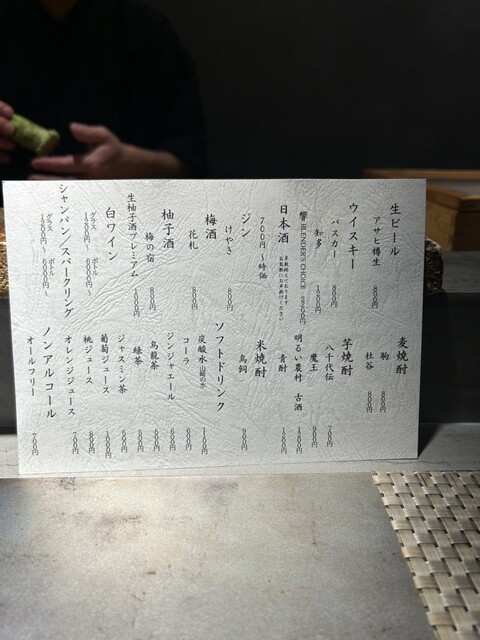 生ビール
アサヒ樽生 800円
ウイスキー
バスカー 800円
知多 1200円
響 BLENDER'S CHOICE
日本酒
多数揃えております
お気軽にお声掛けください
700円〜時価
ジン
けやき 800円
梅酒
花札 800円
柚子酒
梅の宿 800円
生柚子酒プレミアム 1000円
白ワイン
グラス 1200円〜
ボトル 6000円〜
シャンパン/スパークリング
グラス 1200円〜
ボトル 6000円〜
麦焼酎
駒 800円
杜谷 800円
芋焼酎
八千代伝 700円
魔王 900円
明るい農村 古酒
青酎
米焼酎
鳥飼 900円
ソフトドリンク
炭酸水 山崎の水
コーラ 600円
ジンジャエール 600円
烏龍茶 500円
緑茶 500円
ジャスミン茶 500円
葡萄ジュース
桃ジュース 800円
オレンジジュース 700円
ノンアルコール
オールフリー 700円